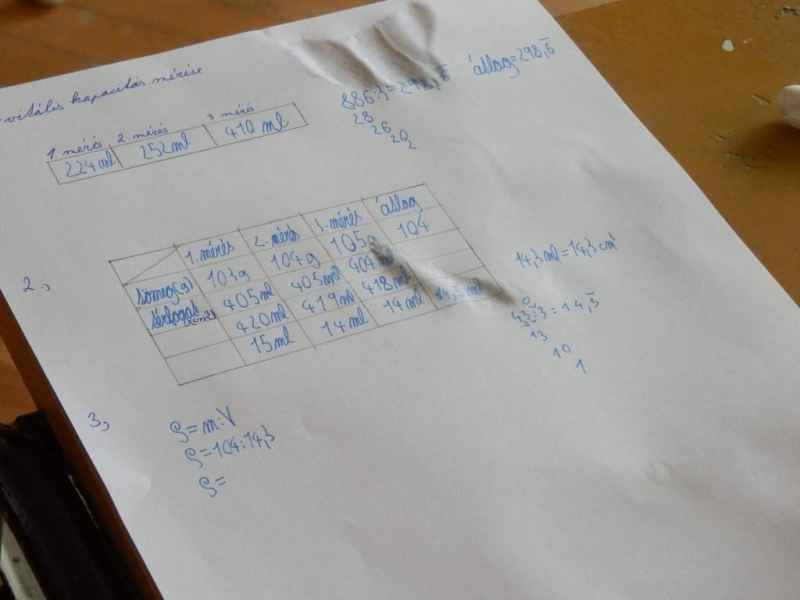 vitális kapacitás mérése
1 mérés 2. mérés 3 mérés
224 ml 252 ml 410 ml
886:3=298,6̅ átlag=298,6̅
28
26
20
2
2,
1. mérés 2. mérés 3. mérés átlag
tömeg(g) 103g 104g 105g 104
térfogat 405ml 405ml 404
420ml 419ml 418ml
15ml 14ml 14ml
14,3 ml = 14,3 cm³
43:3=14,3̅
13
10
1
3,
ϱ=m:V
ϱ=104:14,3
ϱ=